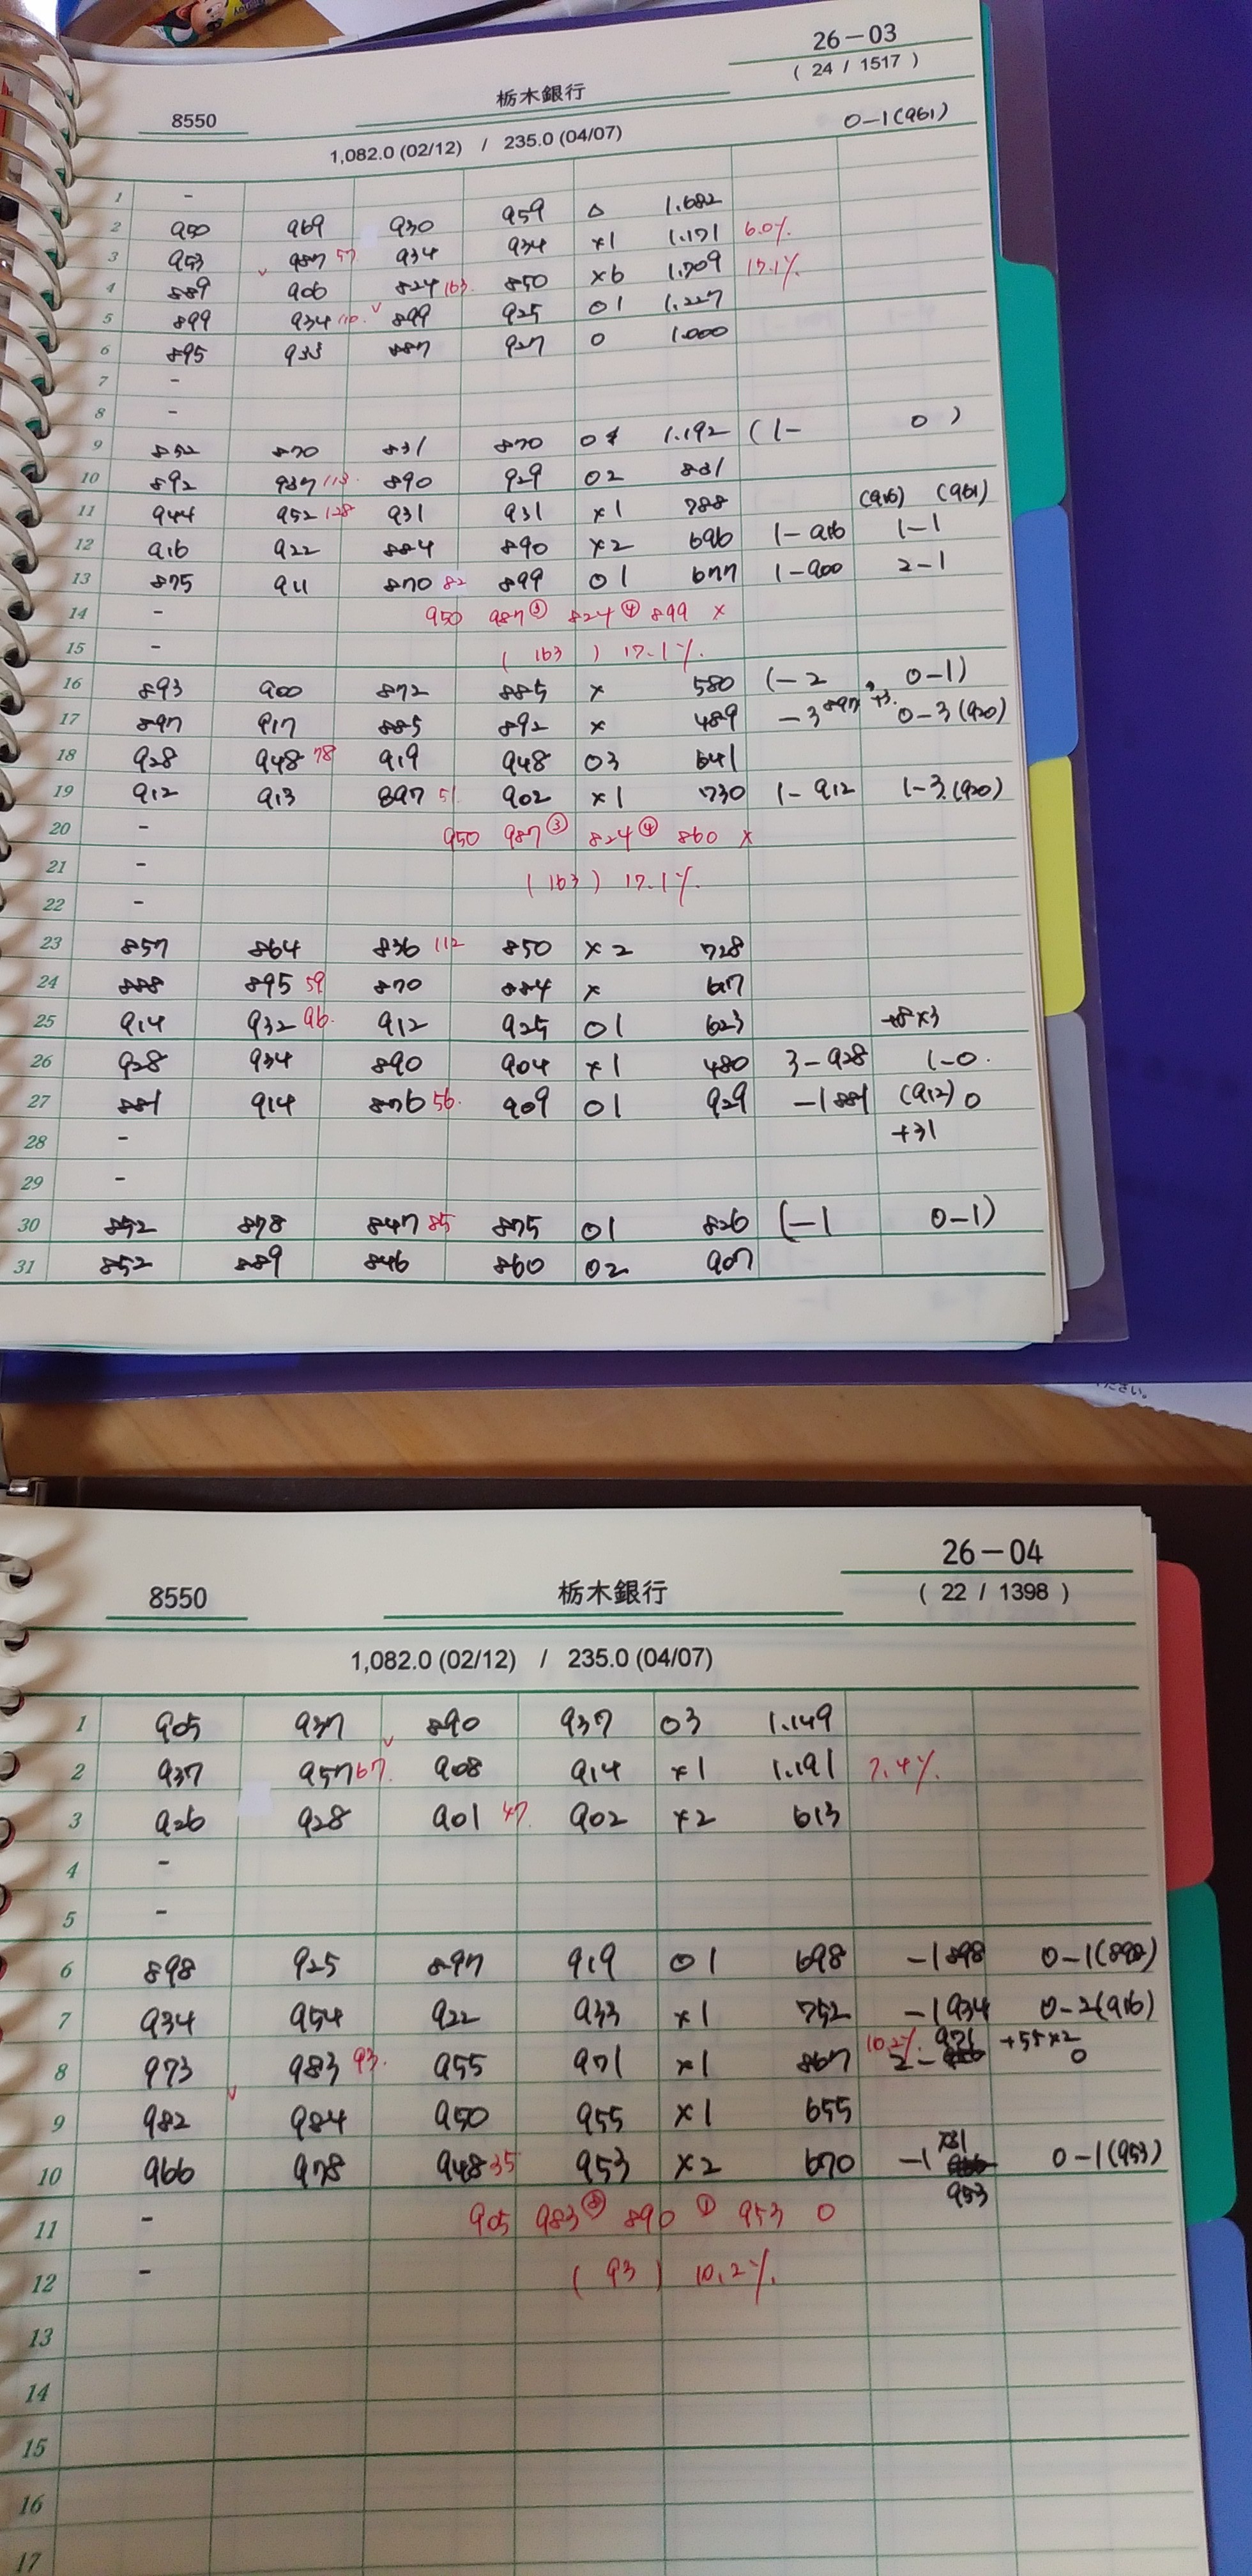 26-03
( 24 / 1517 )
8550 栃木銀行
1,082.0 (02/12) / 235.0 (04/07) 0-1(961)
1 -
2 950 969 930 959 △ 1.682
3 953 987 57 934 934 ×1 1.171 6.0%
4 889 906 824 163 850 ×6 1.709 17.1%
5 899 934 110 899 925 01 1.227
6 895 933 887 927 0 1.000
7 -
8 -
9 852 870 831 870 0 1.192 (1- 0 )
10 892 937 113 890 929 02 831
11 944 952 128 931 931 ×1 788 (916) (961)
12 916 922 884 890 ×2 696 1-916 1-1
13 875 911 870 82 899 01 677 1-900 2-1
14 - 950 987③ 824④ 899 ×
15 - ( 163 ) 17.1%
16 893 900 872 885 × 580 (-2 0-1)
17 897 917 885 892 × 489 -3 897 +3 0-3(920)
18 928 948 78 919 948 03 641
19 912 913 897 51 902 ×1 730 1-912 1-3.(920)
20 - 950 987③ 824④ 860 ×
21 - ( 163 ) 17.1%
22 -
23 857 864 836 112 850 ×2 728
24 888 895 59 870 884 × 617
25 914 932 96 912 925 01 623 +8×3
26 928 934 890 904 ×1 480 3-928 1-0
27 881 914 876 56 909 01 929 -1 881 (912) 0
28 - +31
29 -
30 852 878 847 85 875 01 826 (-1 0-1)
31 852 889 846 860 02 907
26-04
8550 栃木銀行 ( 22 / 1398 )
1,082.0 (02/12) / 235.0 (04/07)
1 905 937 890 937 03 1.149
2 937 957 67 908 914 ×1 1.191 7.4%
3 926 928 901 47 902 ×2 613
4 -
5 -
6 898 925 897 919 01 698 -1 898 0-1(898)
7 934 954 922 933 ×1 752 -1 934 0-2(916)
8 973 983 93 955 971 ×1 867 10.2% 2- 971 +55×2 0
9 982 984 950 955 ×1 655
10 966 978 948 35 953 ×2 670 -1 953 0-1(953)
11 - 905 983⑧ 890① 953 0
12 - ( 93 ) 10.2%
13
14
15
16
17